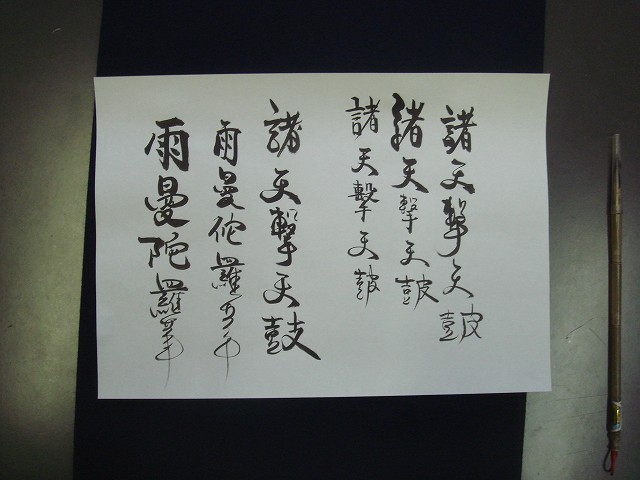 諸天撃天皷
諸天撃天皷
諸天撃天皷
諸天撃天鼓
雨曼陀羅華
雨曼陀羅華